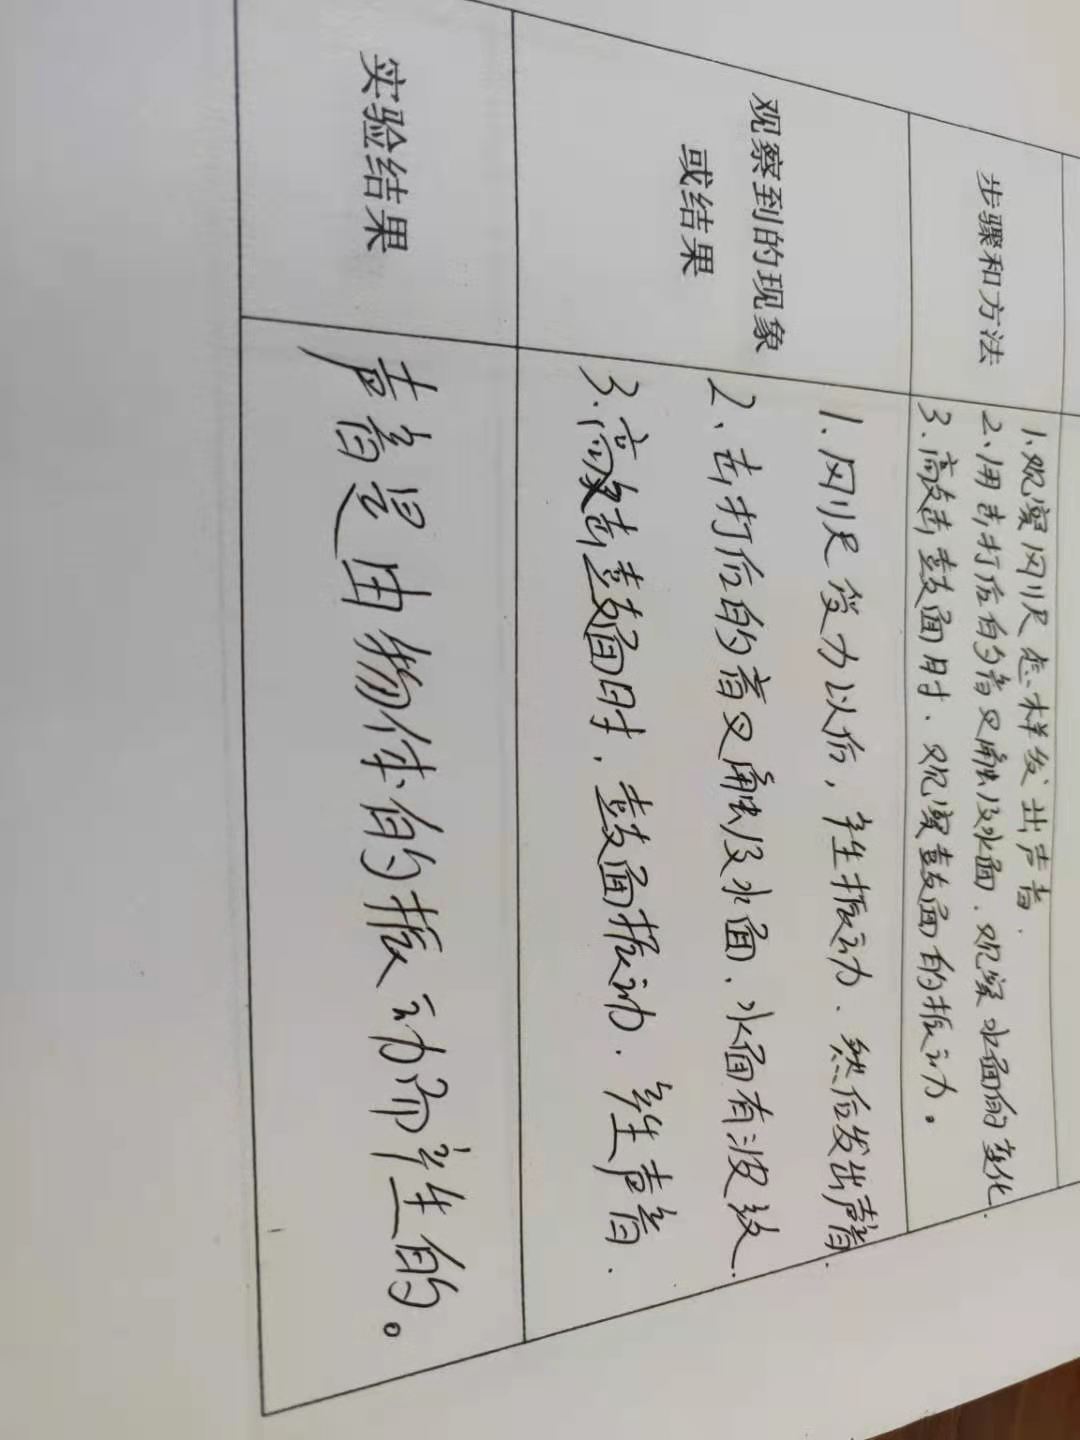 步骤和方法
1.观察冈刂尺怎样发出声音.
2、用击打后的音叉触及水面.观察水面的变化.
3.高攵击鼓面时.观察鼓面的振动。
观察到的现象
或结果
1.冈刂尺受力以后,产生振动.然后发出声音.
2、击打后的音叉触及水面.水面有波纹.
3.敲击鼓面时,鼓面振动.产生声音.
实验结果
声音是由物体的振动而产生的。